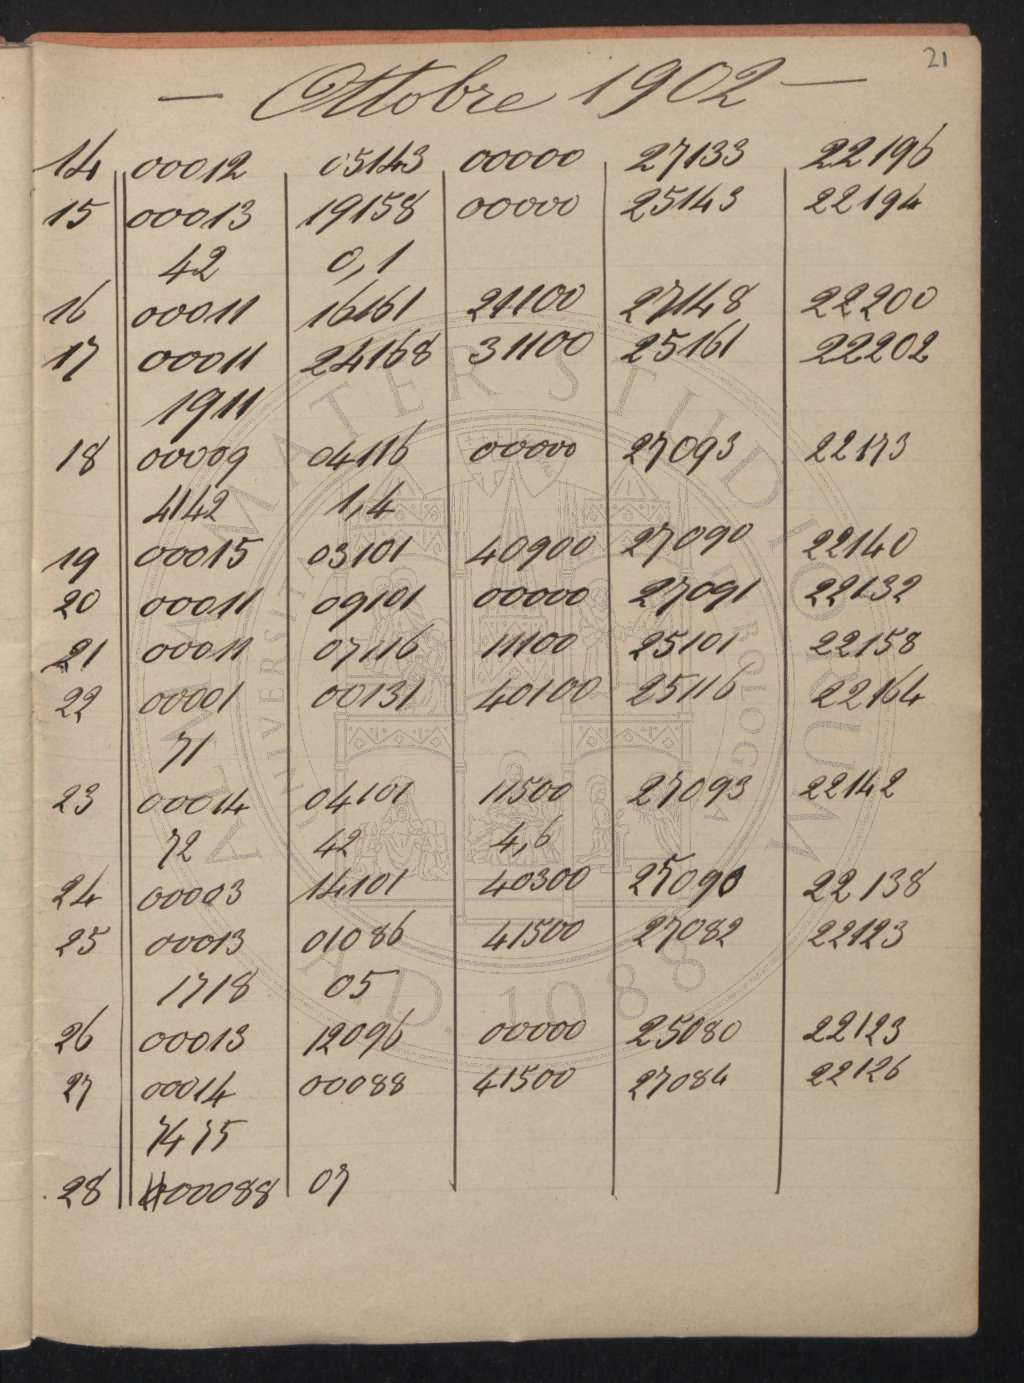 21
— Ottobre 1902 —
14 00012 05143 00000 27133 22196
15 00013 19158 00000 25143 22194
42 0,1
16 00011 16161 21100 27148 22200
17 00011 24168 31100 25161 22202
1911
18 00009 04116 00000 27093 22173
4142 1,4
19 00015 03101 40900 27090 22140
20 00011 09101 00000 27091 22132
21 00011 07116 11100 25101 22158
22 00001 00131 40100 25116 22164
71
23 00014 04101 11500 27093 22142
72 42 4,6
24 00003 14101 40300 25090 22138
25 00013 01086 41500 27082 22123
1718 05
26 00013 12096 00000 25080 22123
27 00014 00088 41500 27084 22126
7475
28 00088 07
ALMA MATER STUDIORUM
UNIVERSITA
A.D. 1088